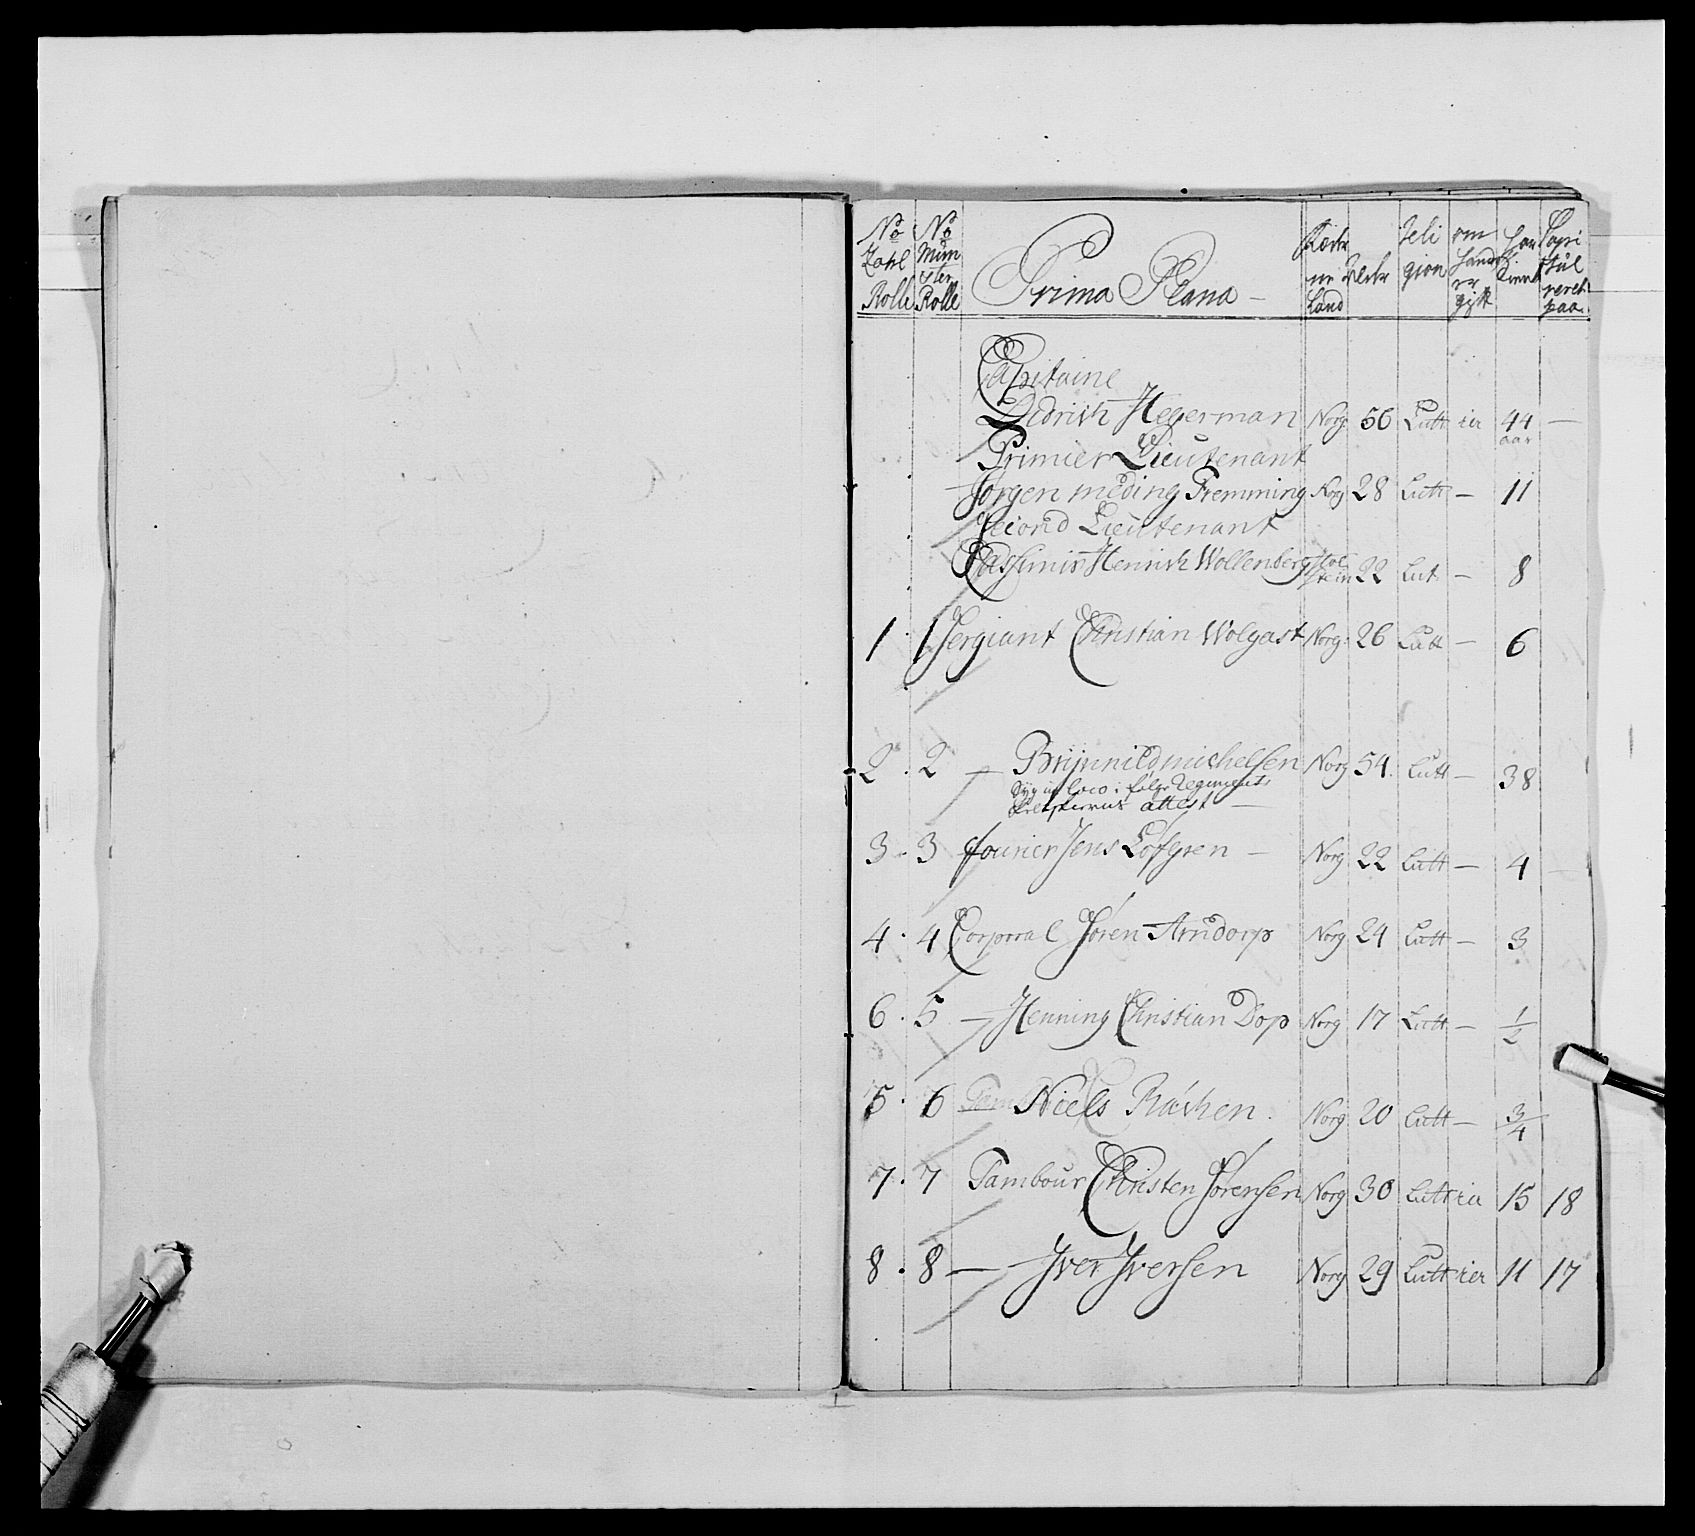 No Zahl Rolle No Mün ster Rolle Prima Plana — Fædre ne Land Alder Reli gion om hand er gift har tient Capi tül veret paa
Capitaine
Didrich Hegerman Norg 56 Lutt ier 44 aar —
Primier Lieutenant
Jørgen Meding Fremming Norg 28 Lutt — 11
Second Lieutenant
Cassimir Henrich Wollenberg Hol stein 22 Lut — 8
1 1 Sergiant Christian Wolgast Norg 26 Lutt — 6
2 . 2 — Brÿnnild michelsen Norg 54 . Lutt — 38
Syg in loco i følge Regiments
attest —
3 . 3 fourier Jens Løfgren — Norg 22 Lutt — 4 —
4 . 4 Corporal Søren Arndorp Norg 24 Lutt — 3
6 . 5 — Henning Christian Dop Norg 17 Lutt — 1/2
5 . 6 Niels Raschen . Norg 20 Lutt — 3/4
7 . 7 Tambour Christen Sørensen Norg 30 Lutt ier 15 18
8 . 8 — Iver Iversen Norg 29 Lutt ier 11 17